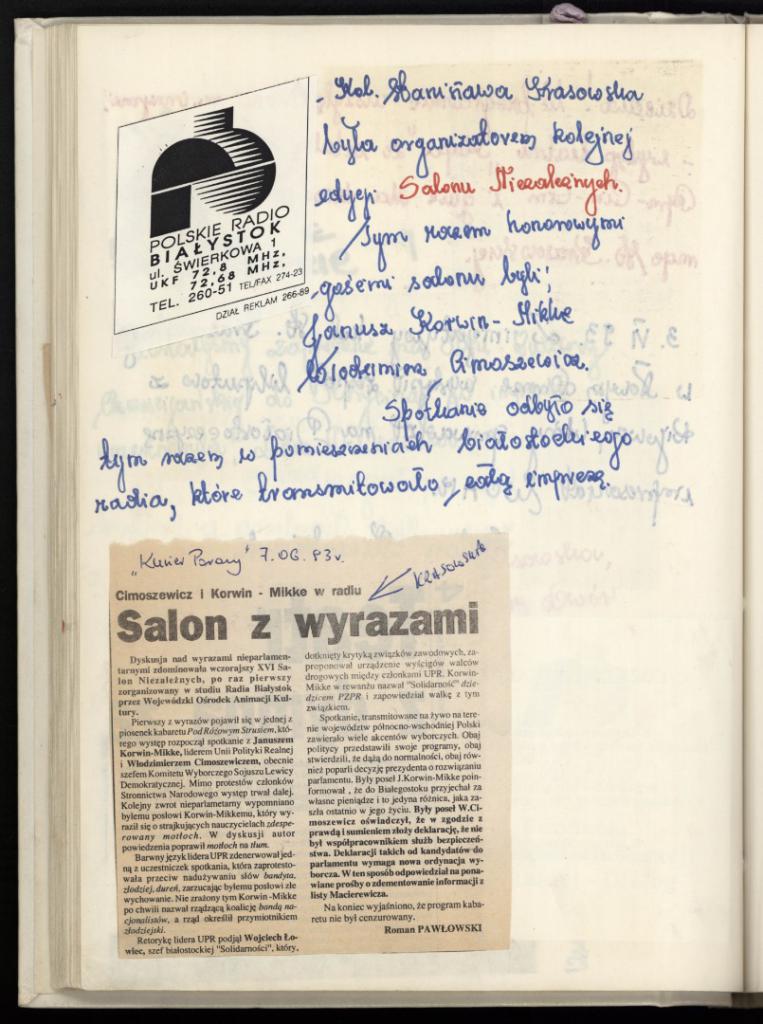 POLSKIE RADIO
BIAŁYSTOK
ul. ŚWIERKOWA 1
UKF 72,8 MHz,
72,68 MHz,
TEL. 260-51 TEL/FAX 274-23
DZIAŁ REKLAM 266-89
- Kol. Stanisława Krasowska
była organizatorem kolejnej
edycji Salonu Niezależnych.
Tym razem honorowymi
gośćmi salonu byli:
Janusz Korwin-Mikke
Włodzimierz Cimoszewicz.
Spotkanie odbyło się
tym razem w pomieszczeniach białostockiego
radia, które transmitowało całą imprezę.
"Kurier Porany" 7.06.93r.
KRASOWSKA
Cimoszewicz i Korwin - Mikke w radiu
Salon z wyrazami
Dyskusja nad wyrazami nieparlamen-
tarnymi zdominowała wczorajszy XVI Sa-
lon Niezależnych, po raz pierwszy
zorganizowany w studiu Radia Białystok
przez Wojewódzki Ośrodek Animacji Kul-
tury.
Pierwszy z wyrazów pojawił się w jednej z
piosenek kabaretu Pod Różowym Strusiem, któ-
rego występ rozpoczął spotkanie z Januszem
Korwin-Mikke, liderem Unii Polityki Realnej
i Włodzimierzem Cimoszewiczem, obecnie
szefem Komitetu Wyborczego Sojuszu Lewicy
Demokratycznej. Mimo protestów członków
Stronnictwa Narodowego występ trwał dalej.
Kolejny zwrot nieparlametarny wypomniano
byłemu posłowi Korwin-Mikkemu, który wy-
raził się o strajkujących nauczycielach zdespe-
rowany motłoch. W dyskusji autor
powiedzenia poprawił motłoch na tłum.
Barwny język lidera UPR zdenerwował jed-
ną z uczestniczek spotkania, która zaprotesto-
wała przeciw nadużywaniu słów bandyta,
złodziej, dureń, zarzucając byłemu posłowi złe
wychowanie. Nie zrażony tym Korwin -Mikke
po chwili nazwał rządzącą koalicję bandą na-
cjonalistów, a rząd określił przymiotnikiem
złodziejski.
Retorykę lidera UPR podjął Wojciech Ło-
wiec, szef białostockiej "Solidarności", który,
dotknięty krytyką związków zawodowych, za-
proponował urządzenie wyścigów walców
drogowych między członkami UPR. Korwin-
Mikke w rewanżu nazwał "Solidarność" dzie-
dzicem PZPR i zapowiedział walkę z tym
związkiem.
Spotkanie, transmitowane na żywo na tere-
nie województw północno-wschodniej Polski
zawierało wiele akcentów wyborczych. Obaj
politycy przedstawili swoje programy, obaj
stwierdzili, że dążą do normalności, obaj rów-
nież poparli decyzję prezydenta o rozwiązaniu
parlamentu. Były poseł J.Korwin-Mikke poin-
formował , że do Białegostoku przyjechał za
własne pieniądze i to jedyna różnica, jaka za-
szła ostatnio w jego życiu. Były poseł W.Ci-
moszewicz oświadczył, że w zgodzie z
prawdą i sumieniem złoży deklarację, że nie
był współpracownikiem służb bezpieczeń-
stwa. Deklaracji takich od kandydatów do
parlamentu wymaga nowa ordynacja wy-
borcza. W ten sposób odpowiedział na pona-
wiane prośby o zdementowanie informacji z
listy Macierewicza.
Na koniec wyjaśniono, że program kaba-
retu nie był cenzurowany.
Roman PAWŁOWSKI